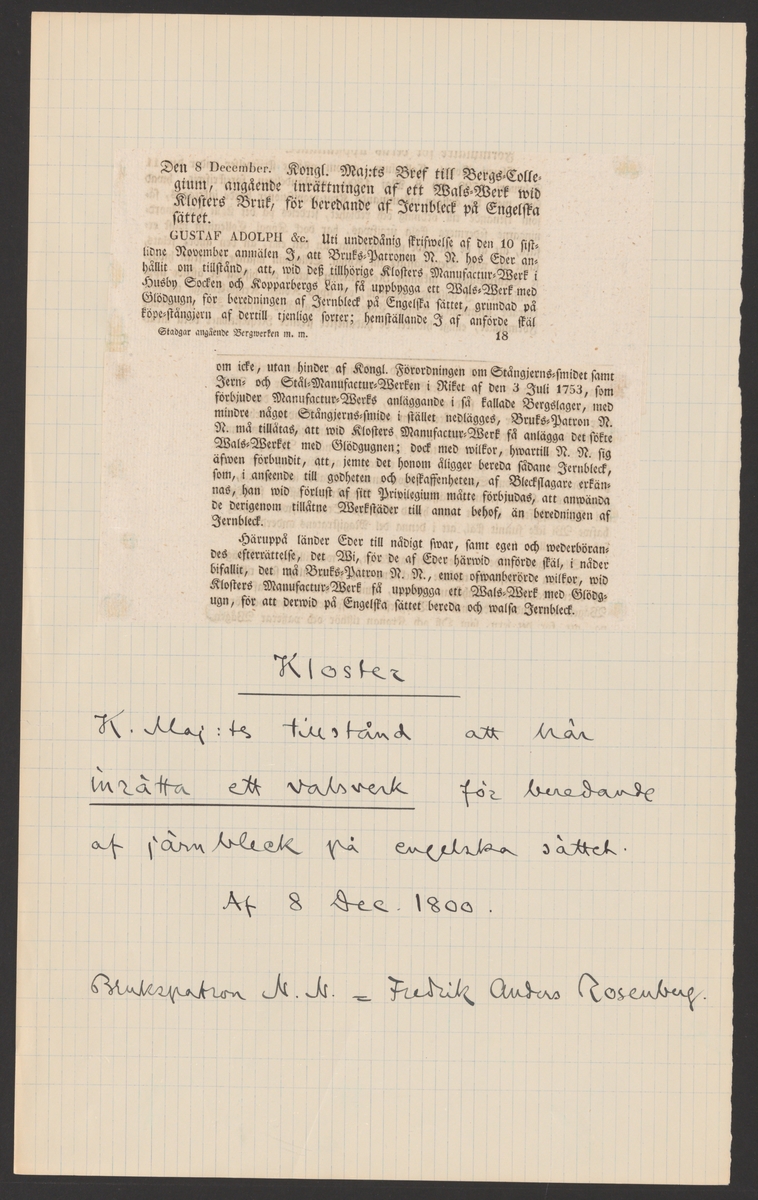 Den 8 December. Kongl. Maj:ts Bref till Bergs-Colle-
gium, angående inrättningen af ett Wals-Werk wid
Klosters Bruk, för beredande af Jernbleck på Engelska
sättet.
GUSTAF ADOLPH &c. Uti underdånig skrifwelse af den 10 sist-
lidne November anmälen J, att Bruks-Patronen N. N. hos Eder an-
hållit om tillstånd, att, wid deß tillhörige Klosters Manufactur-Werk i
Husby Socken och Kopparbergs Län, få uppbygga ett Wals-Werk med
Glödgugn, för beredningen af Jernbleck på Engelska sättet, grundad på
köpe-stångjern af dertill tjenlige sorter; hemställande J af anförde skäl
Stadgar angående Bergwerken m. m. 18
om icke, utan hinder af Kongl. Förordningen om Stångjerns-smidet samt
Jern- och Stål-Manufactur-Werken i Riket af den 3 Juli 1753, som
förbjuder Manufactur-Werks anläggande i så kallade Bergslager, med
mindre något Stångjerns-smide i stället nedlägges, Bruks-Patron N.
N. må tillåtas, att wid Klosters Manufactur-Werk få anlägga det sökte
Wals-Werket med Glödgugnen; dock med wilkor, hwartill N. N. sig
äfwen förbundit, att, jemte det honom åligger bereda sådane Jernbleck,
som, i anseende till godheten och beskaffenheten, af Bleckslagare erkän-
nas, han wid förlust af sitt Privilegium måtte förbjudas, att anwända
de derigenom tillåtne Werkstäder till annat behof, än beredningen af
Jernbleck.
Häruppå länder Eder till nådigt swar, samt egen och wederböran-
des efterrättelse, det Wi, för de af Eder härwid anförde skäl, i nåder
bifallit, det må Bruks-Patron N. N., emot ofwanberörde wilkor, wid
Klosters Manufactur-Werk få uppbygga ett Wals-Werk med Glödg-
ugn, för att derwid på Engelska sättet bereda och walsa Jernbleck.
Kloster
K. Maj:ts tillstånd att här
inrätta ett valsverk för beredande
af järnbleck på engelska sättet.
Af 8 Dec. 1800.
Brukspatron N. N. = Fredrik Anders Rosenberg.